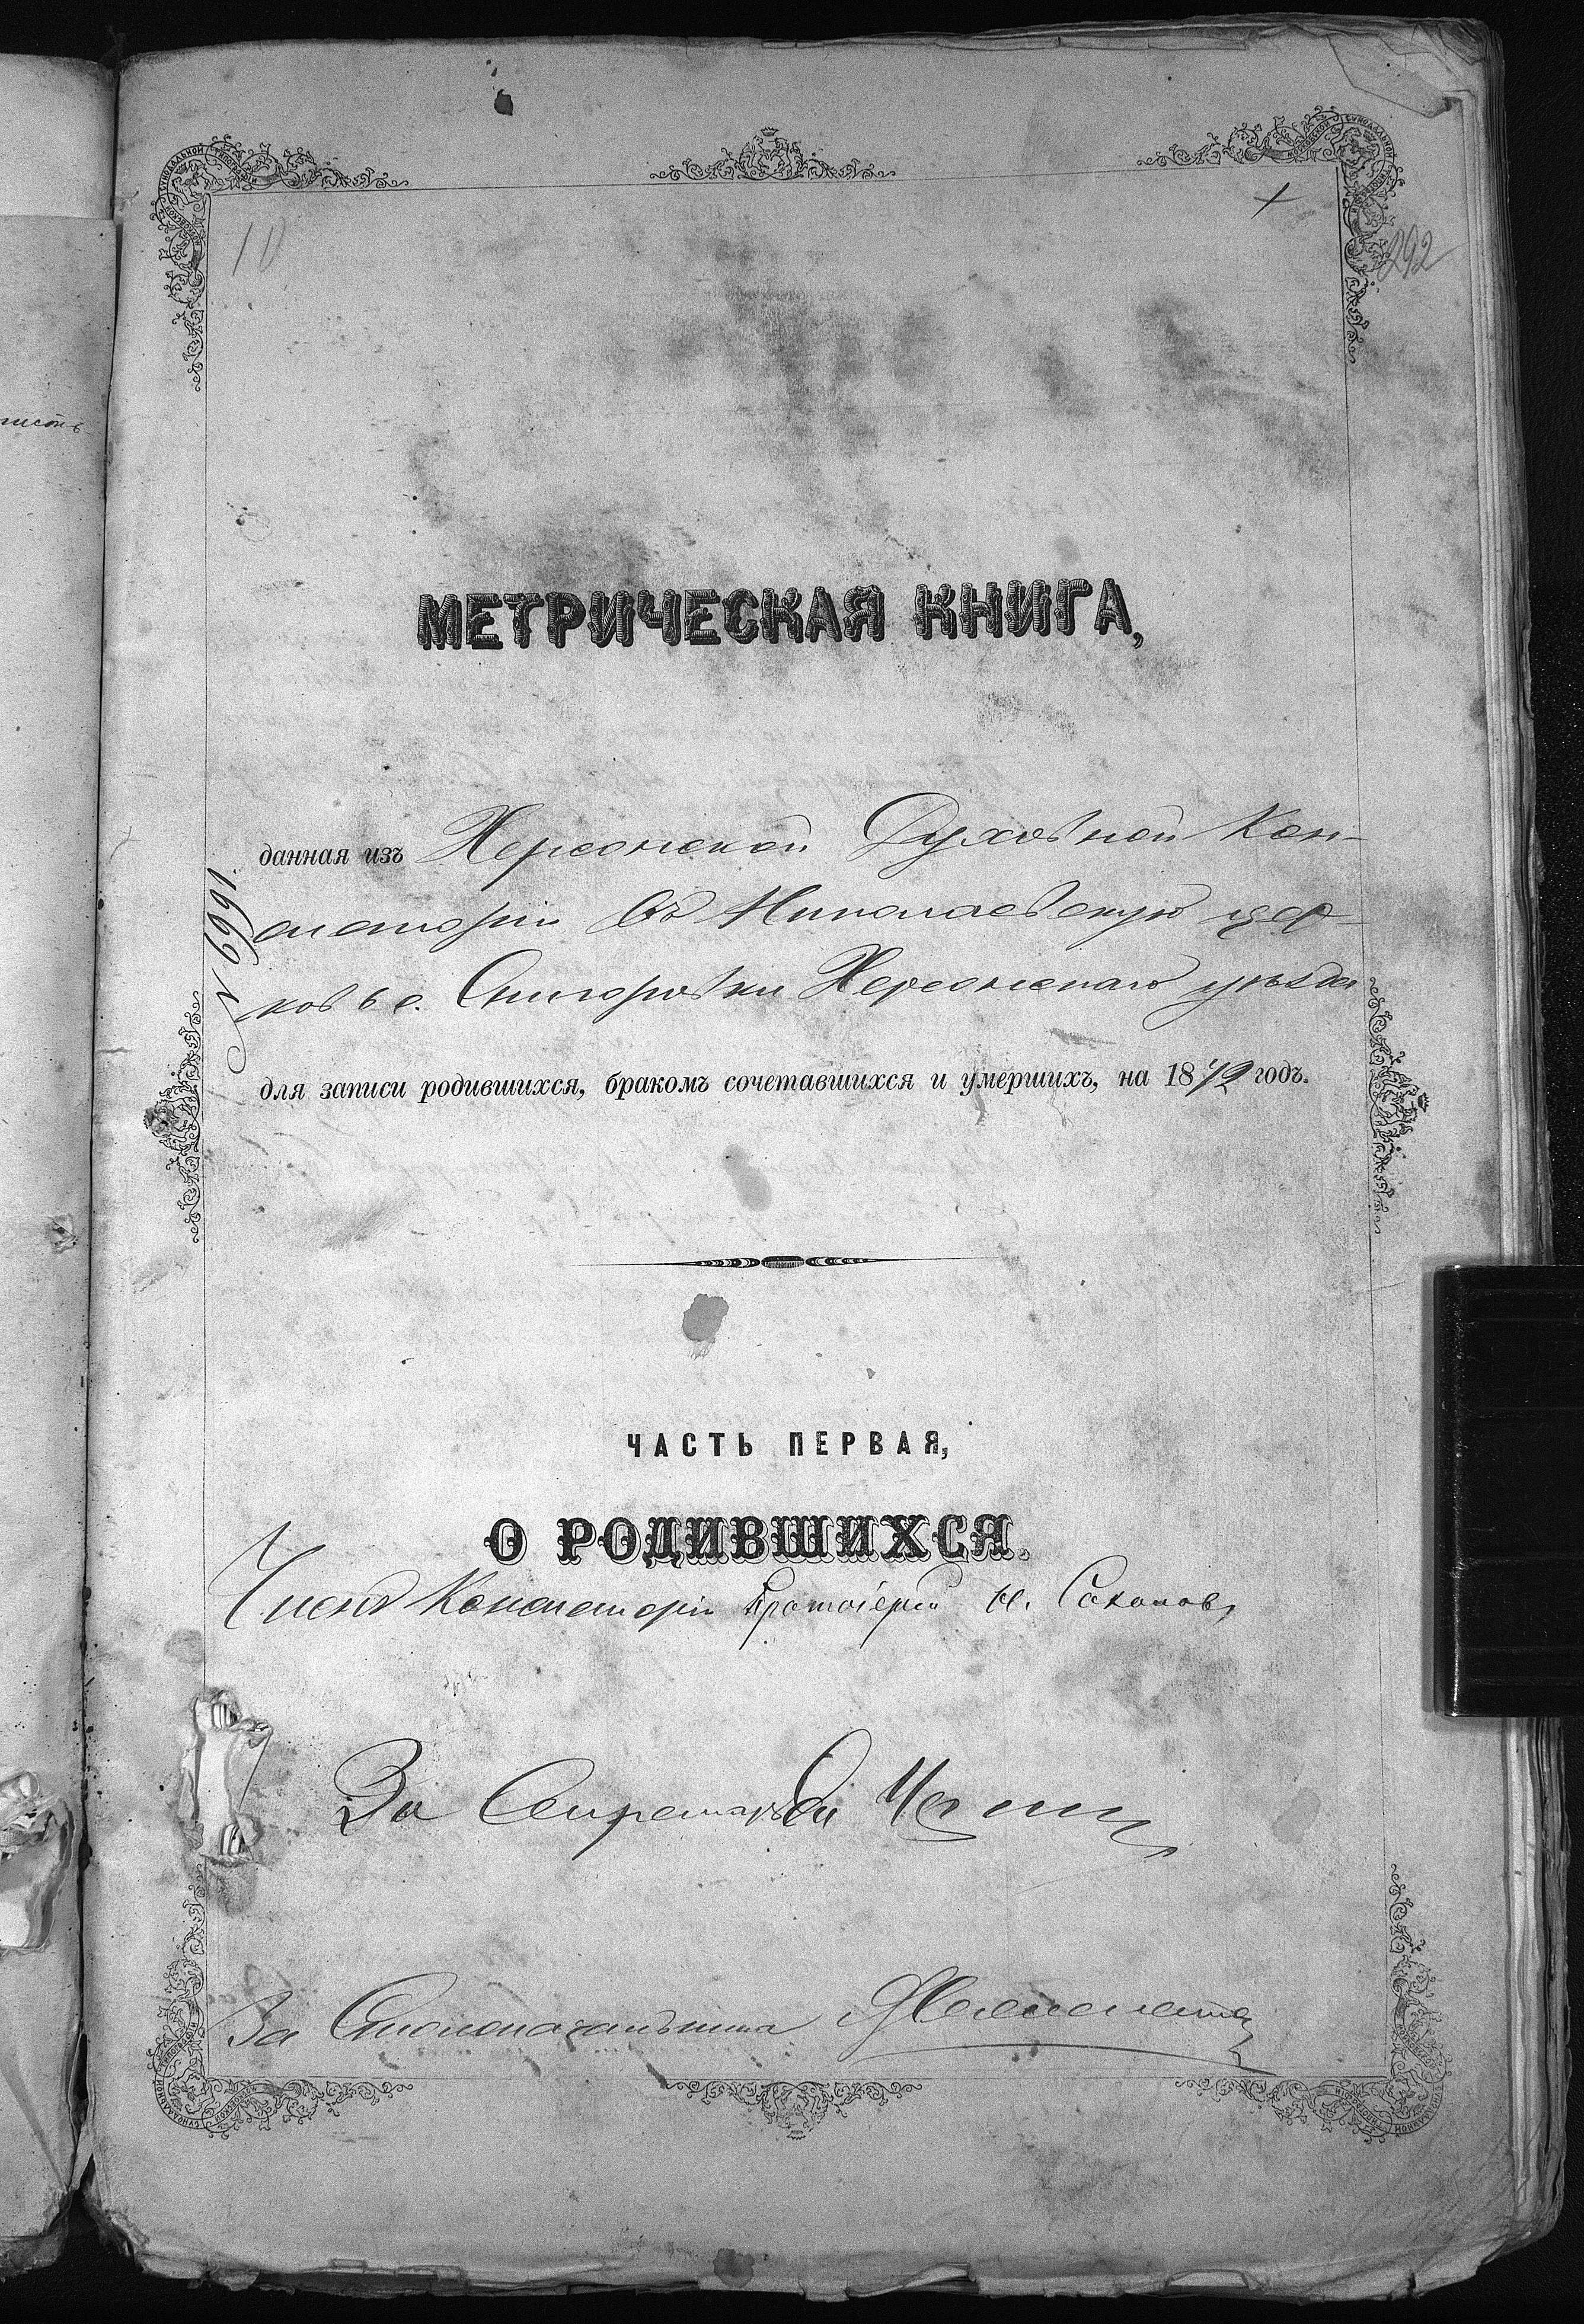 10
292
МЕТРИЧЕСКАЯ КНИГА,
данная изъ Херсонской Духовной Кон-
систоріи въ Николаевскую цер-
ковь с. Снигоровки Херсонскаго уѣзда
№ 6991.
для записи родившихся, бракомъ сочетавшихся и умершихъ, на 1872 годъ.
ЧАСТЬ ПЕРВАЯ,
О РОДИВШИХСЯ.
Членъ Консисторіи Протоіерей
За Секретаря
За Столоначальника